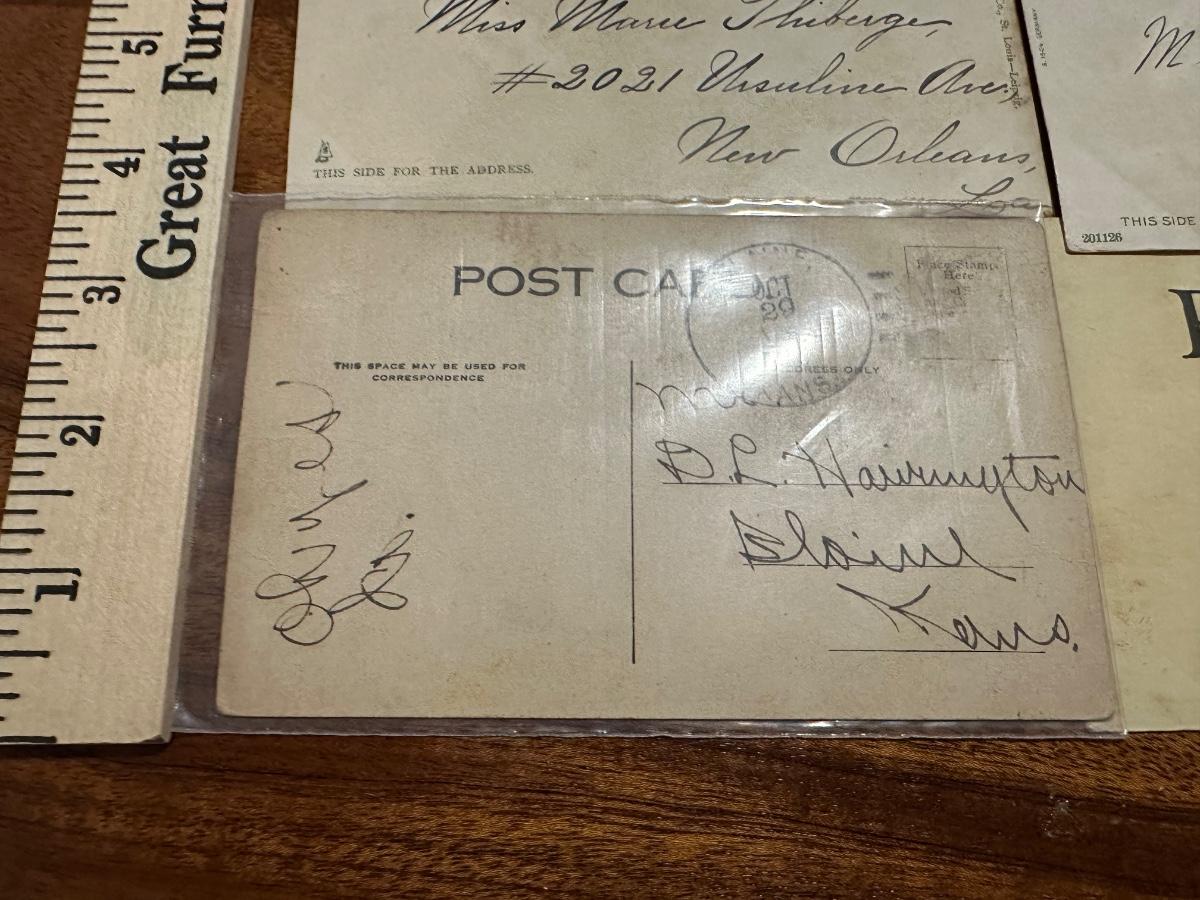 Great Furn
5
4
3
2
1
Miss Marie Thiberge,
#2021 Ursuline Ave.,
New Orleans,
La
THIS SIDE FOR THE ADDRESS.
St. Louis—Leipzig.
GERMANY
M
THIS SIDE
201126
POST CAR
OCT
29
KANS.
Place Stamp
Here
THIS SPACE MAY BE USED FOR
CORRESPONDENCE
ADDRESS ONLY
D. L. Hairrington
Elaine
Kans.